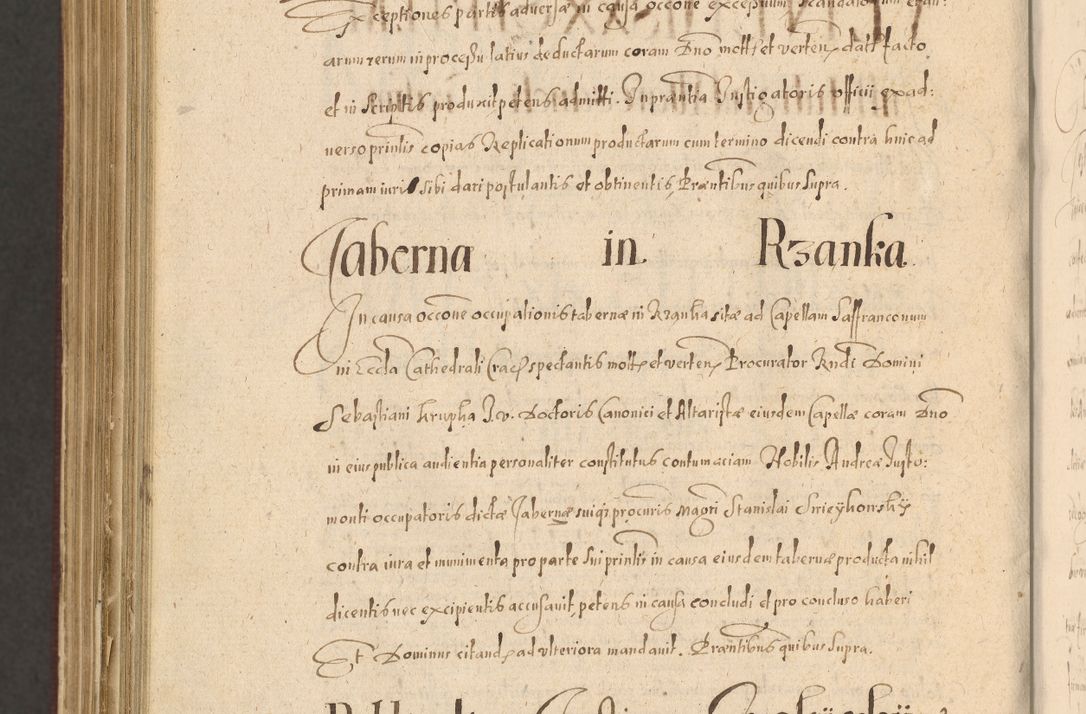 Exceptiones partis adversæ in causa occone excessuum scandalorum enar:
arum rerum in processu latius deductarum coram Dno mott et verten, datt facto
et in scriptis produxit petens admitti. In præntia Instigatoris officii ex ad:
verso prinlis copias Replicationum productarum cum termino dicendi contra hinc ad
primam iuris sibi dari postulantis et obtinentis, Præntibus quibus supra.
Taberna in Rzanka
In causa occone occupationis tabernæ in Rzanka sitæ ad Capellam Saffranconum
in Eccla Cathedrali Crac spectantis mott et verten, Procurator Rndi Domini
Sebastiani Krupka J.V. Doctoris Canonici et Altaristæ eiusdem Capellæ coram Dno
in eius publica audientia personaliter constitutus contumaciam Nobilis Andreæ Justo:
monti occupatoris dictæ Tabernæ suiqz procuris Magri Stanislai
contra iura et munimenta pro parte sui prinlis in causa eiusdem tabernæ producta nihil
dicentis nec excipientis accusavit, petens in causa concludi et pro concluso haberi
Et Dominus citand ad ulteriora mandavit. Præntibus quibus supra.